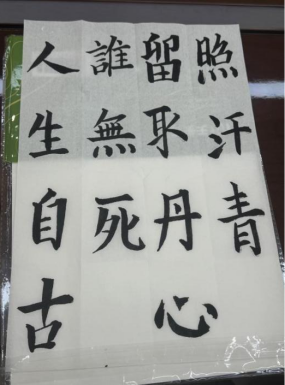 人生自古
誰無死
留取丹心
照汗青